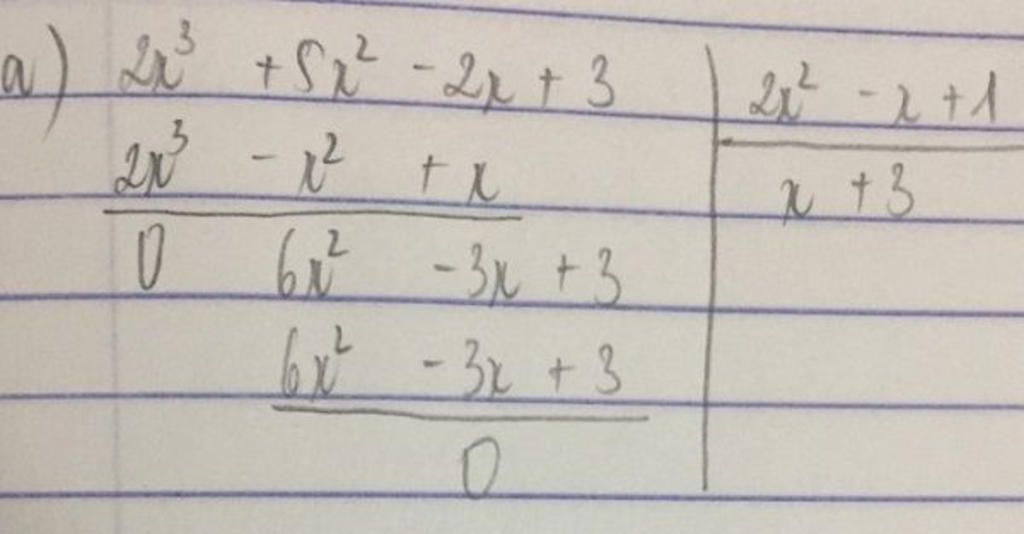 a) 2x³ + 5x² - 2x + 3 | 2x² - x + 1
2x³ - x² + x | x + 3
0 6x² - 3x + 3
6x² - 3x + 3
0